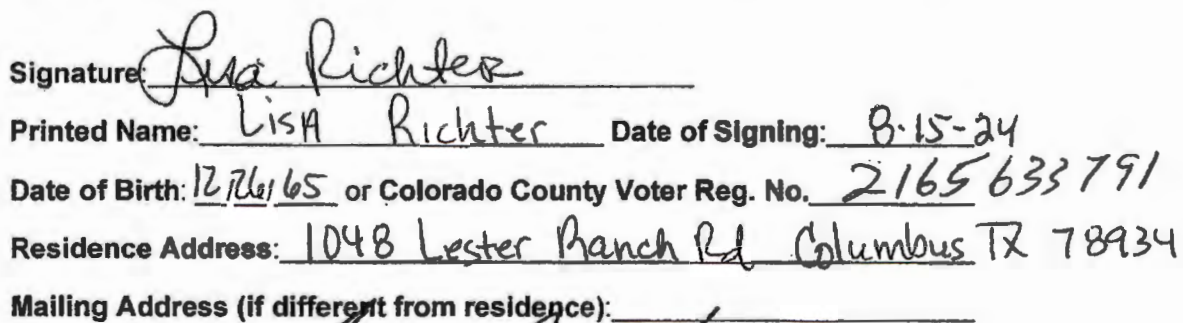 Signature: Lisa Richter
Printed Name: LisA Richter Date of Signing: 8-15-24
Date of Birth: 12/26/65 or Colorado County Voter Reg. No. 2165633791
Residence Address: 1048 Lester Ranch Rd Columbus TX 78934
Mailing Address (if different from residence):